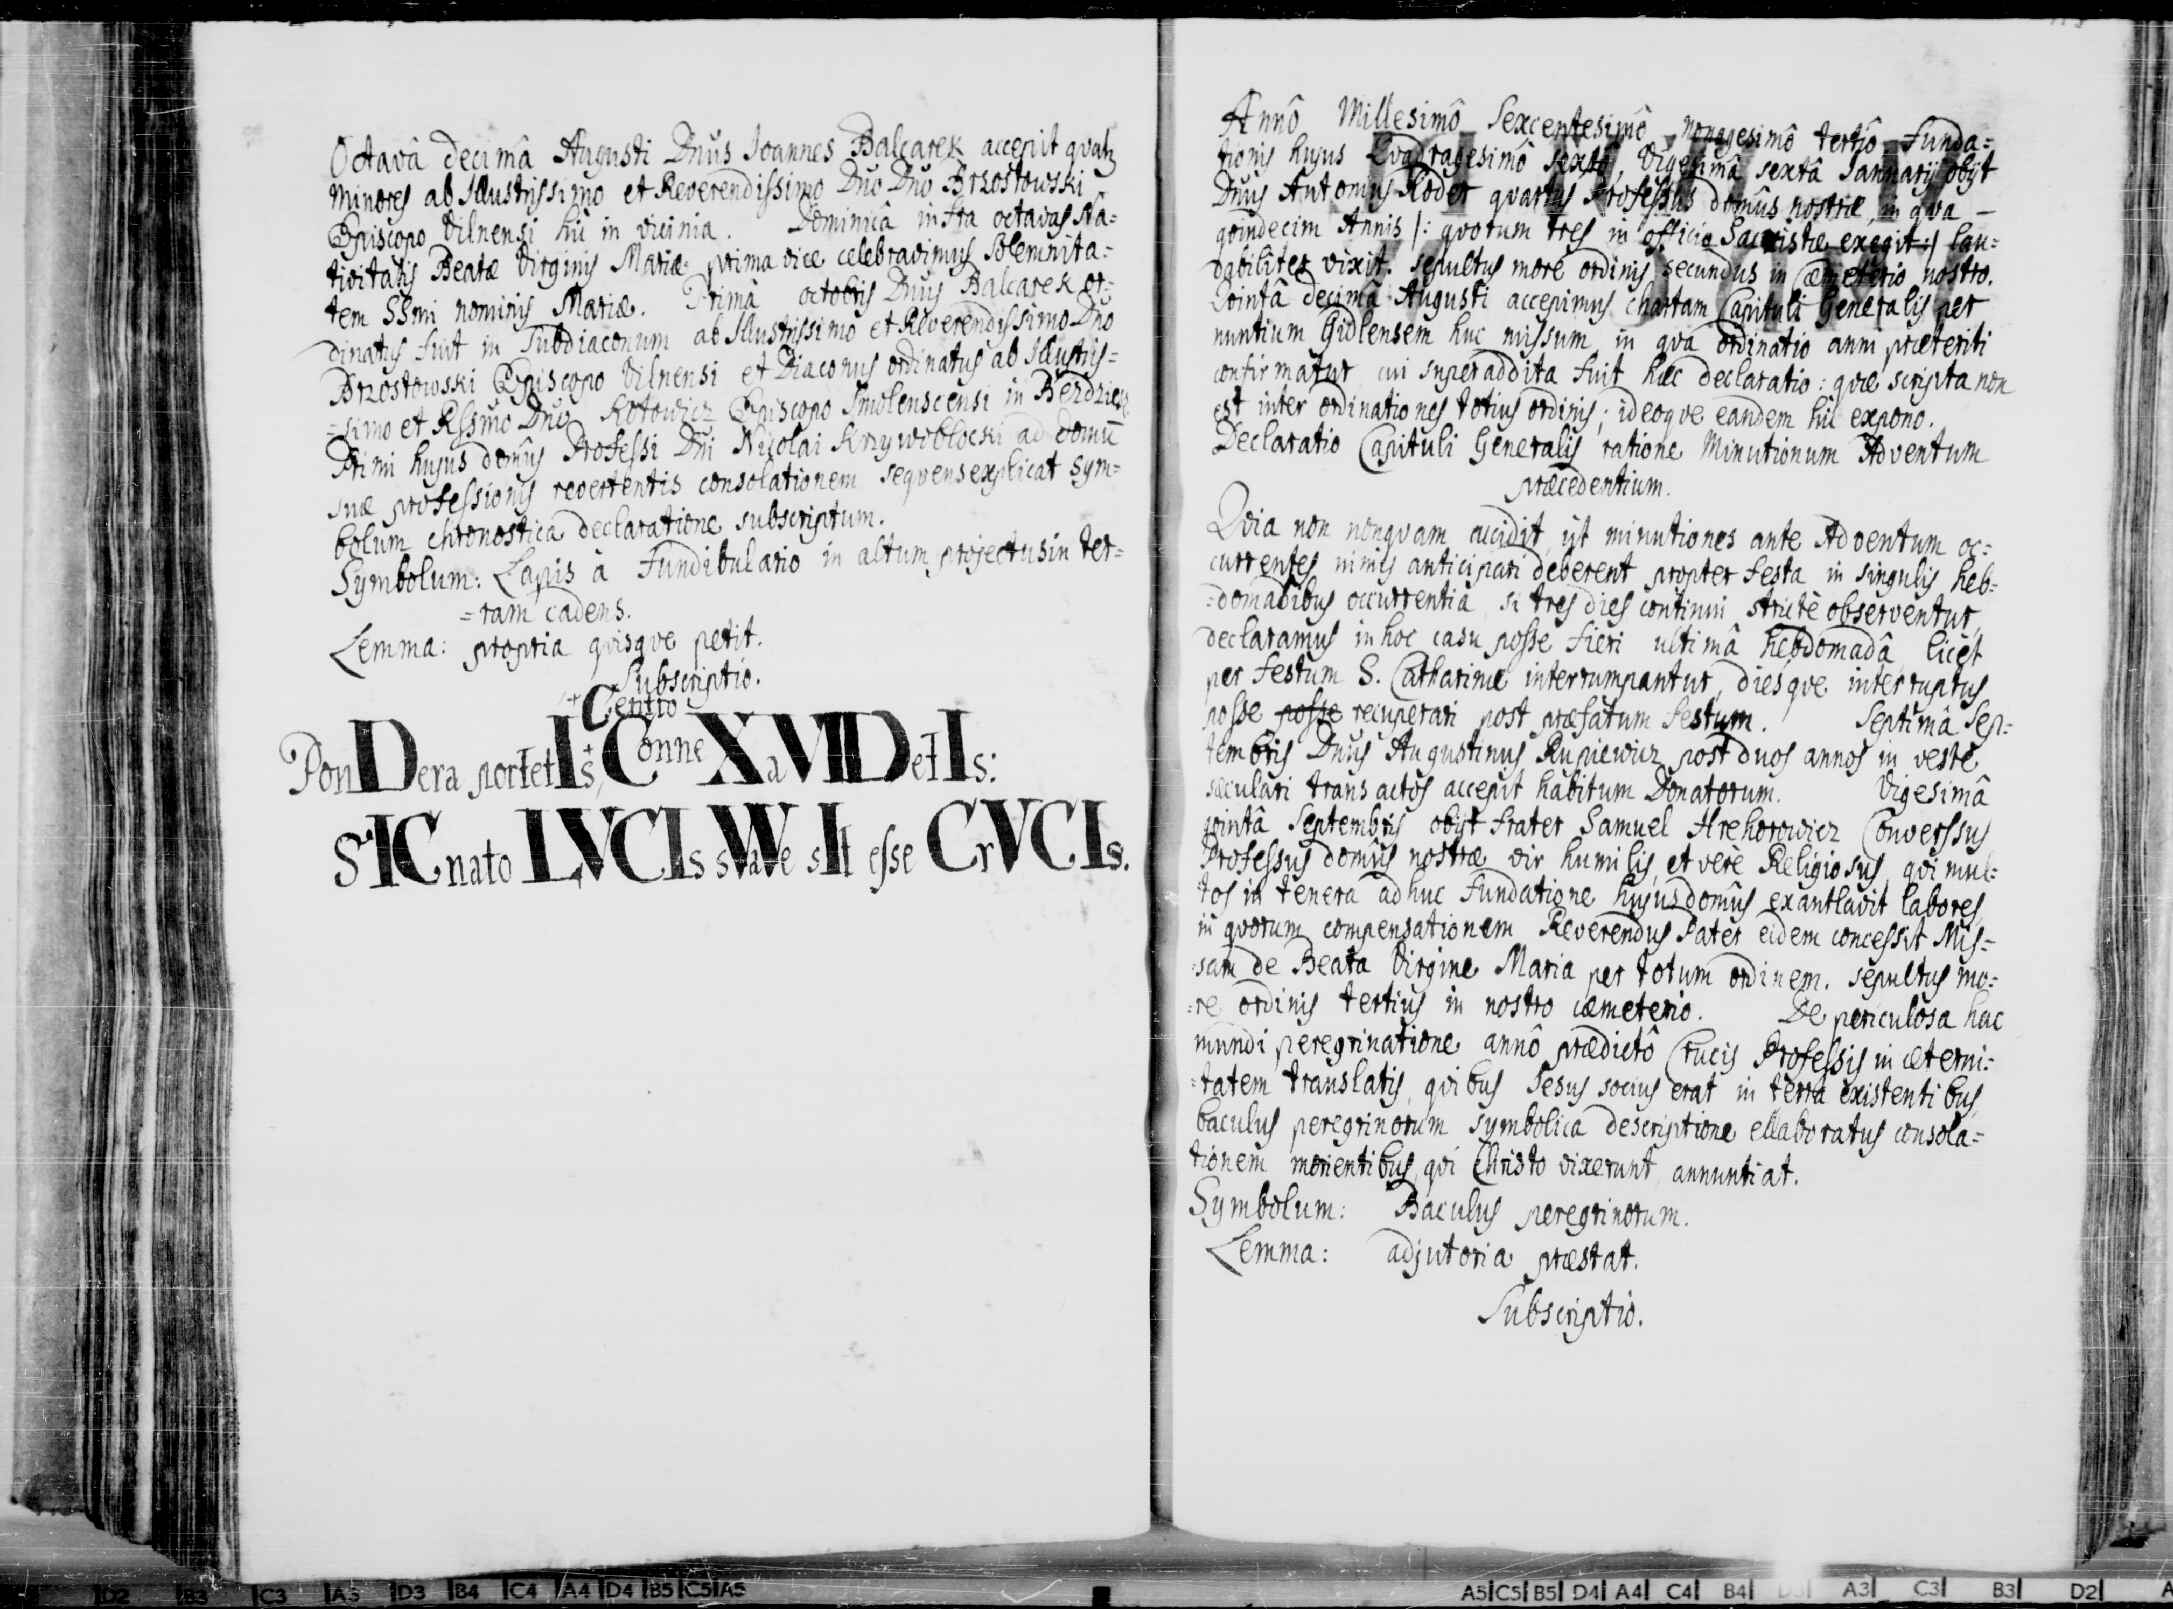 Octavâ decimâ Augusti Dnus Joannes Balcarek accepit qvatz
Minores ab Illustrissimo et Reverendissimo Dno Dno Brzostowski
Episcopo Vilnensi hîc in vicinia. Dominicâ infra octavas Na=
tivitatis Beatæ Virginis Mariæ prima vice celebravimus Solemnita=
tem SSmi nominis Mariæ. Primâ octobris Dnus Balcarek or=
dinatus fuit in Subdiaconum ab Illustrissimo et Reverendissimo Dno
Brzostowski Episcopo Vilnensi et Diaconus ordinatus ab Illustris=
=simo et Rssimo Dno Kotowicz Episcopo Smolenscensi in
Primi hujus domûs Professi Dni Nicolai Krzywoblocki ad domū
suæ professionis revertentis consolationem seqvens explicat sym=
bolum chronostica declaratione subscriptum.
Symbolum: Lapis à Fundibulario in altum projectus in ter=
=ram cadens.
Lemma: propria quisqve petit.
Subscriptio.
+Centro
PonDera portet Is, + Conne XaVIDetIs:
SICnato LVCIs sVaVe sIt esse CrVCIs.
Annô Millesimô Sexcentesimô nonagesimô tertiô, Funda=
tionis hujus Qvadragesimô sextô, Vigesimâ sextâ Januarij obijt
Dnus Antonius Koder quartus Professus domûs nostræ, in qva —
qvindecim Annis /: qvorum tres in officio Sacristæ exegit :/ lau=
dabiliter vixit. sepultus more ordinis secundus in cæmeterio nostro.
Qvintâ decimâ Augusti accepimus chartam Capituli Generalis per
nuntium Gidlensem huc missum, in qva ordinatio anni præteriti
confirmatur cui superaddita fuit hæc declaratio: qvæ scripta non
est inter ordinationes totius ordinis; ideoqve eandem hîc expono.
Declaratio Capituli Generalis ratione Minutionum Adventum
præcedentium.
Qvia non nonqvam accidit, ut minutiones ante Adventum oc=
currentes nimis anticipari deberent propter festa in singulis heb=
=domadibus occurrentia si tres dies continui strictè observentur,
declaramus in hoc casu posse fieri ultimâ hebdomadâ, licet
per festum S. Catharinæ interrumpantur, diesqve interruptus
posse posse recuperari post præfatum festum. Septimâ Sep=
tembris Dnus Augustinus Rupiewicz post duos annos in veste
sæculari transactos accepit habitum Donatorum. Vigesimâ
qvintâ Septembris obijt frater Samuel Hrehorowicz Converssus
Professus domûs nostræ vir humilis, et verè Religiosus, qvi mul=
tos in tenera adhuc fundatione hujus domûs exantlavit labores,
in qvorum compensationem Reverendus Pater eidem concessit Mis=
=sam de Beata Virgine Maria per totum ordinem. sepultus mo=
=re ordinis tertius in nostro cæmeterio. De periculosa hac
mundi peregrinatione annô prædictô Crucis Professis in æterni=
=tatem translatis, qvibus Jesus socius erat in terra existentibus,
baculus peregrinorum symbolica descriptione ellaboratus consola=
tionem morientibus, qvi Christo vixerunt, annuntiat.
Symbolum: Baculus peregrinorum.
Lemma: adjutoria præstat.
Subscriptio.
D2 B3 C3 A3 D3 B4 C4 A4 D4 B5 C5 A5
A5 C5 B5 D4 A4 C4 B4 D3 A3 C3 B3 D2